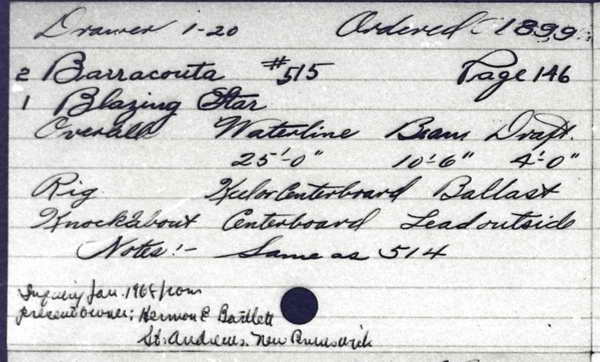 Drawer 1-20 Ordered 1899
2 Barracouta #515 Page 146
1 Blazing Star
Overall Waterline Beam Draft.
25'-0" 10'-6" 4'-0"
Rig Keel or Centerboard Ballast
Knockabout Centerboard Lead outside
Notes:- Same as 514
Inquiry Jan. 1968 from
present owner; Hermon E Bartlett
St. Andrews, New Brunswick